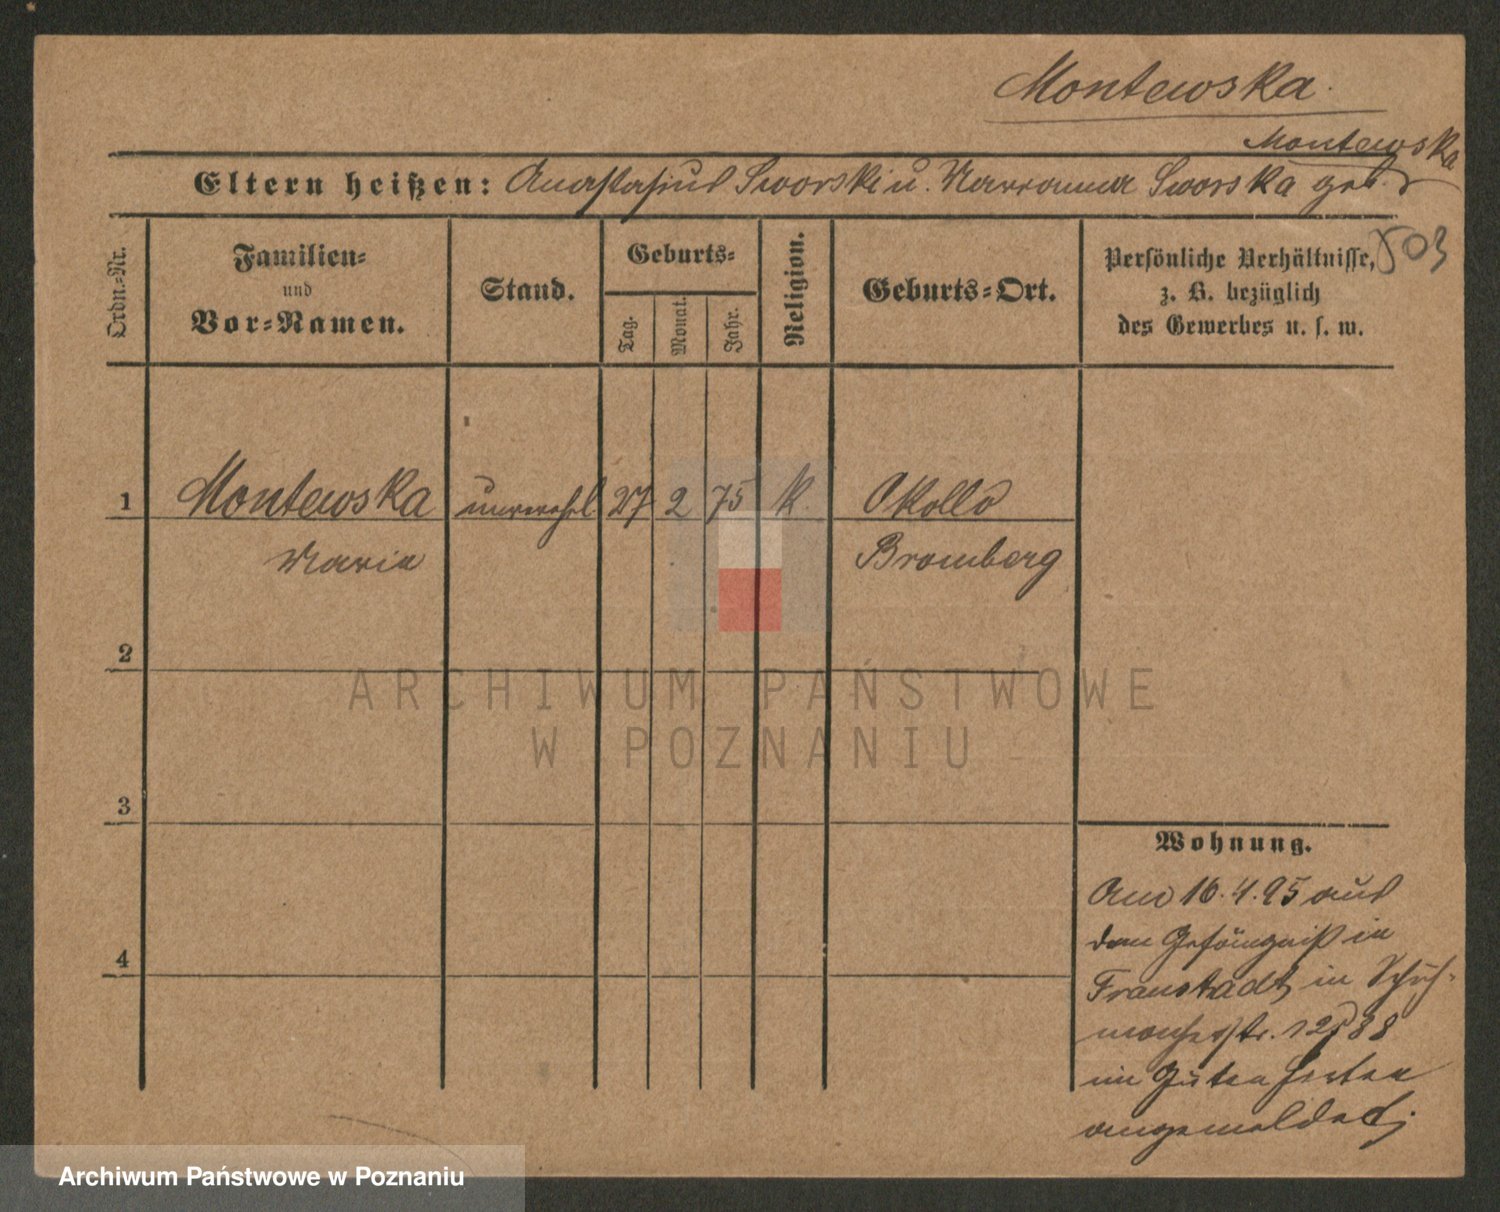 Montewska.
Montewska
Eltern heißen: Anastasius Sworski u. Marianna Sworska geb.
Ordn.-Nr.
Familien-
und
Vor-Namen.
Stand.
Geburts-
Tag.
Monat.
Jahr.
Religion.
Geburts-Ort.
Persönliche Verhältnisse,
z. B. bezüglich
des Gewerbes u. s. w.
503
1 Montewska unverehl 27 2 75 k. Okollo
Maria Bromberg
2
3
4
Wohnung.
Am 16.4.95 aus
dem Gefängniß in
Fraustadt in Schuh-
macherstr. 12
im Guten Hirten
angemeldet.
ARCHIWUM PAŃSTWOWE
W POZNANIU
Archiwum Państwowe w Poznaniu